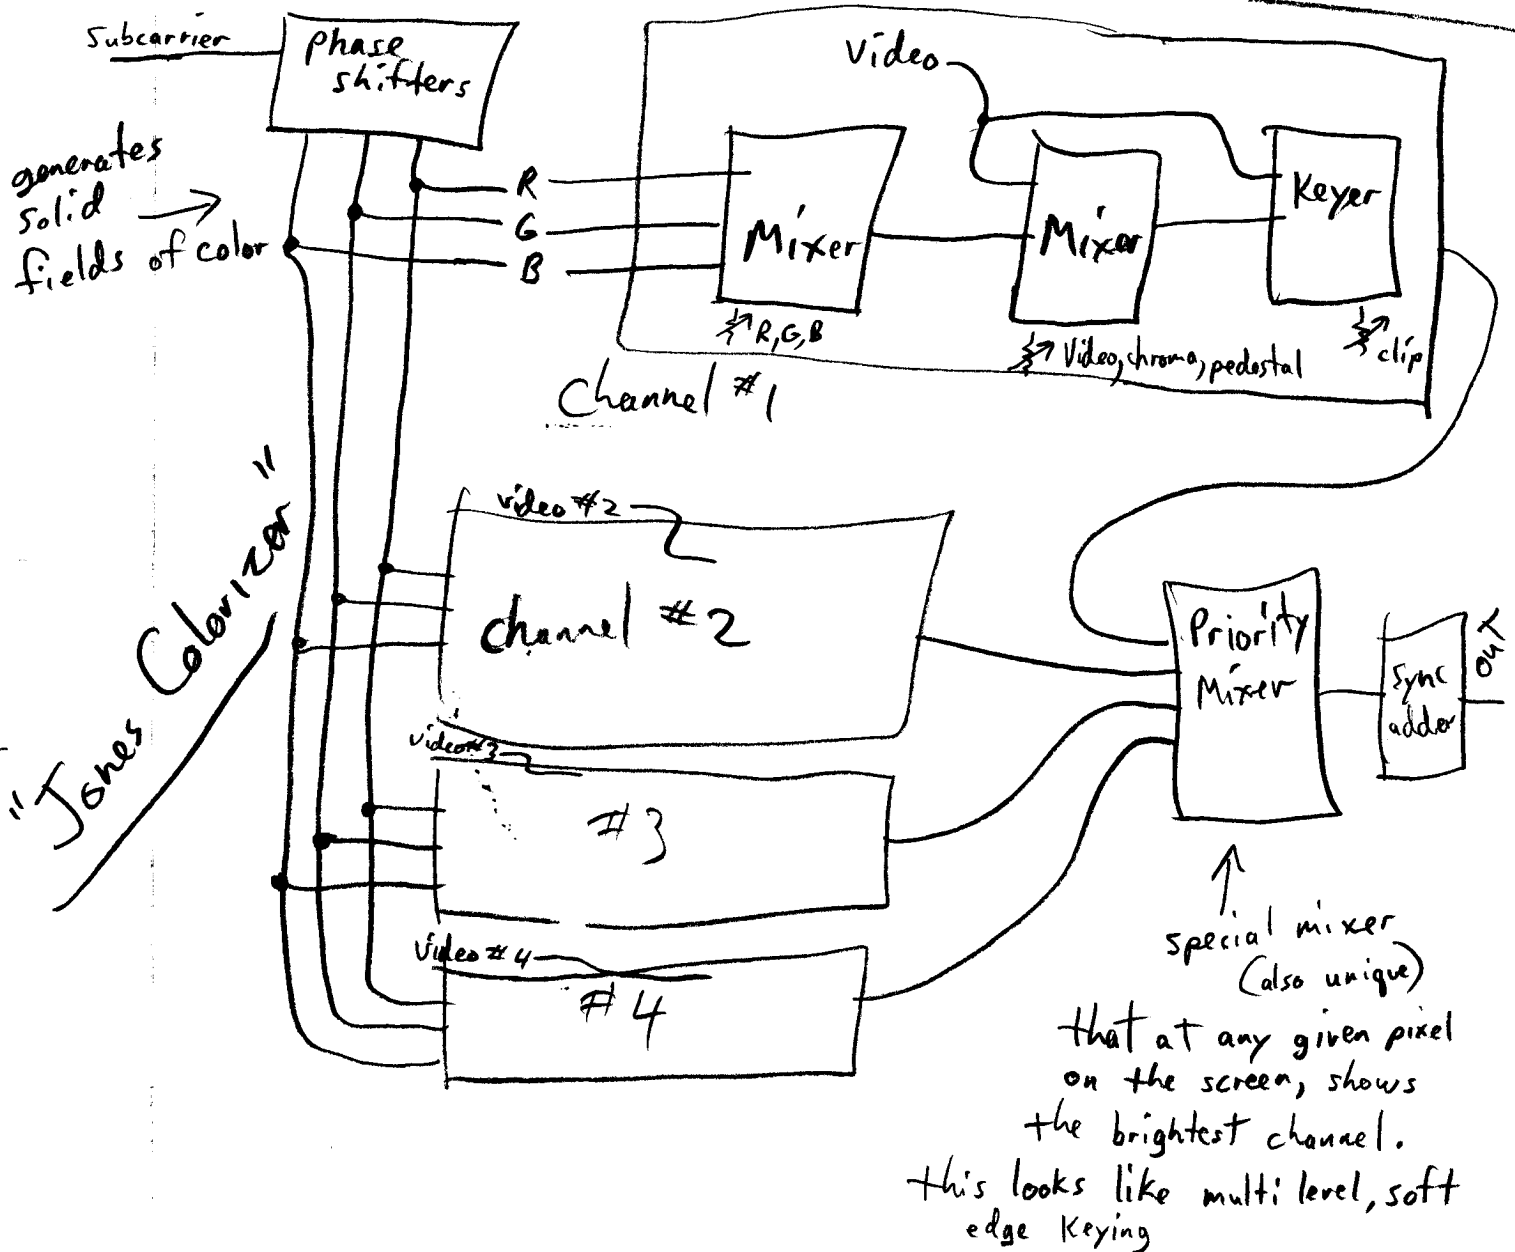 Subcarrier
phase
shifters
generates
solid
fields of color
R
G
B
Video
Mixer
Mixer
Keyer
R, G, B
Video, chroma, pedestal
clip
Channel #1
"Jones Colorizer"
video #2
channel #2
video #3
#3
video #4
#4
Priority
Mixer
sync
adder
out
special mixer
(also unique)
that at any given pixel
on the screen, shows
the brightest channel.
this looks like multi level, soft
edge keying